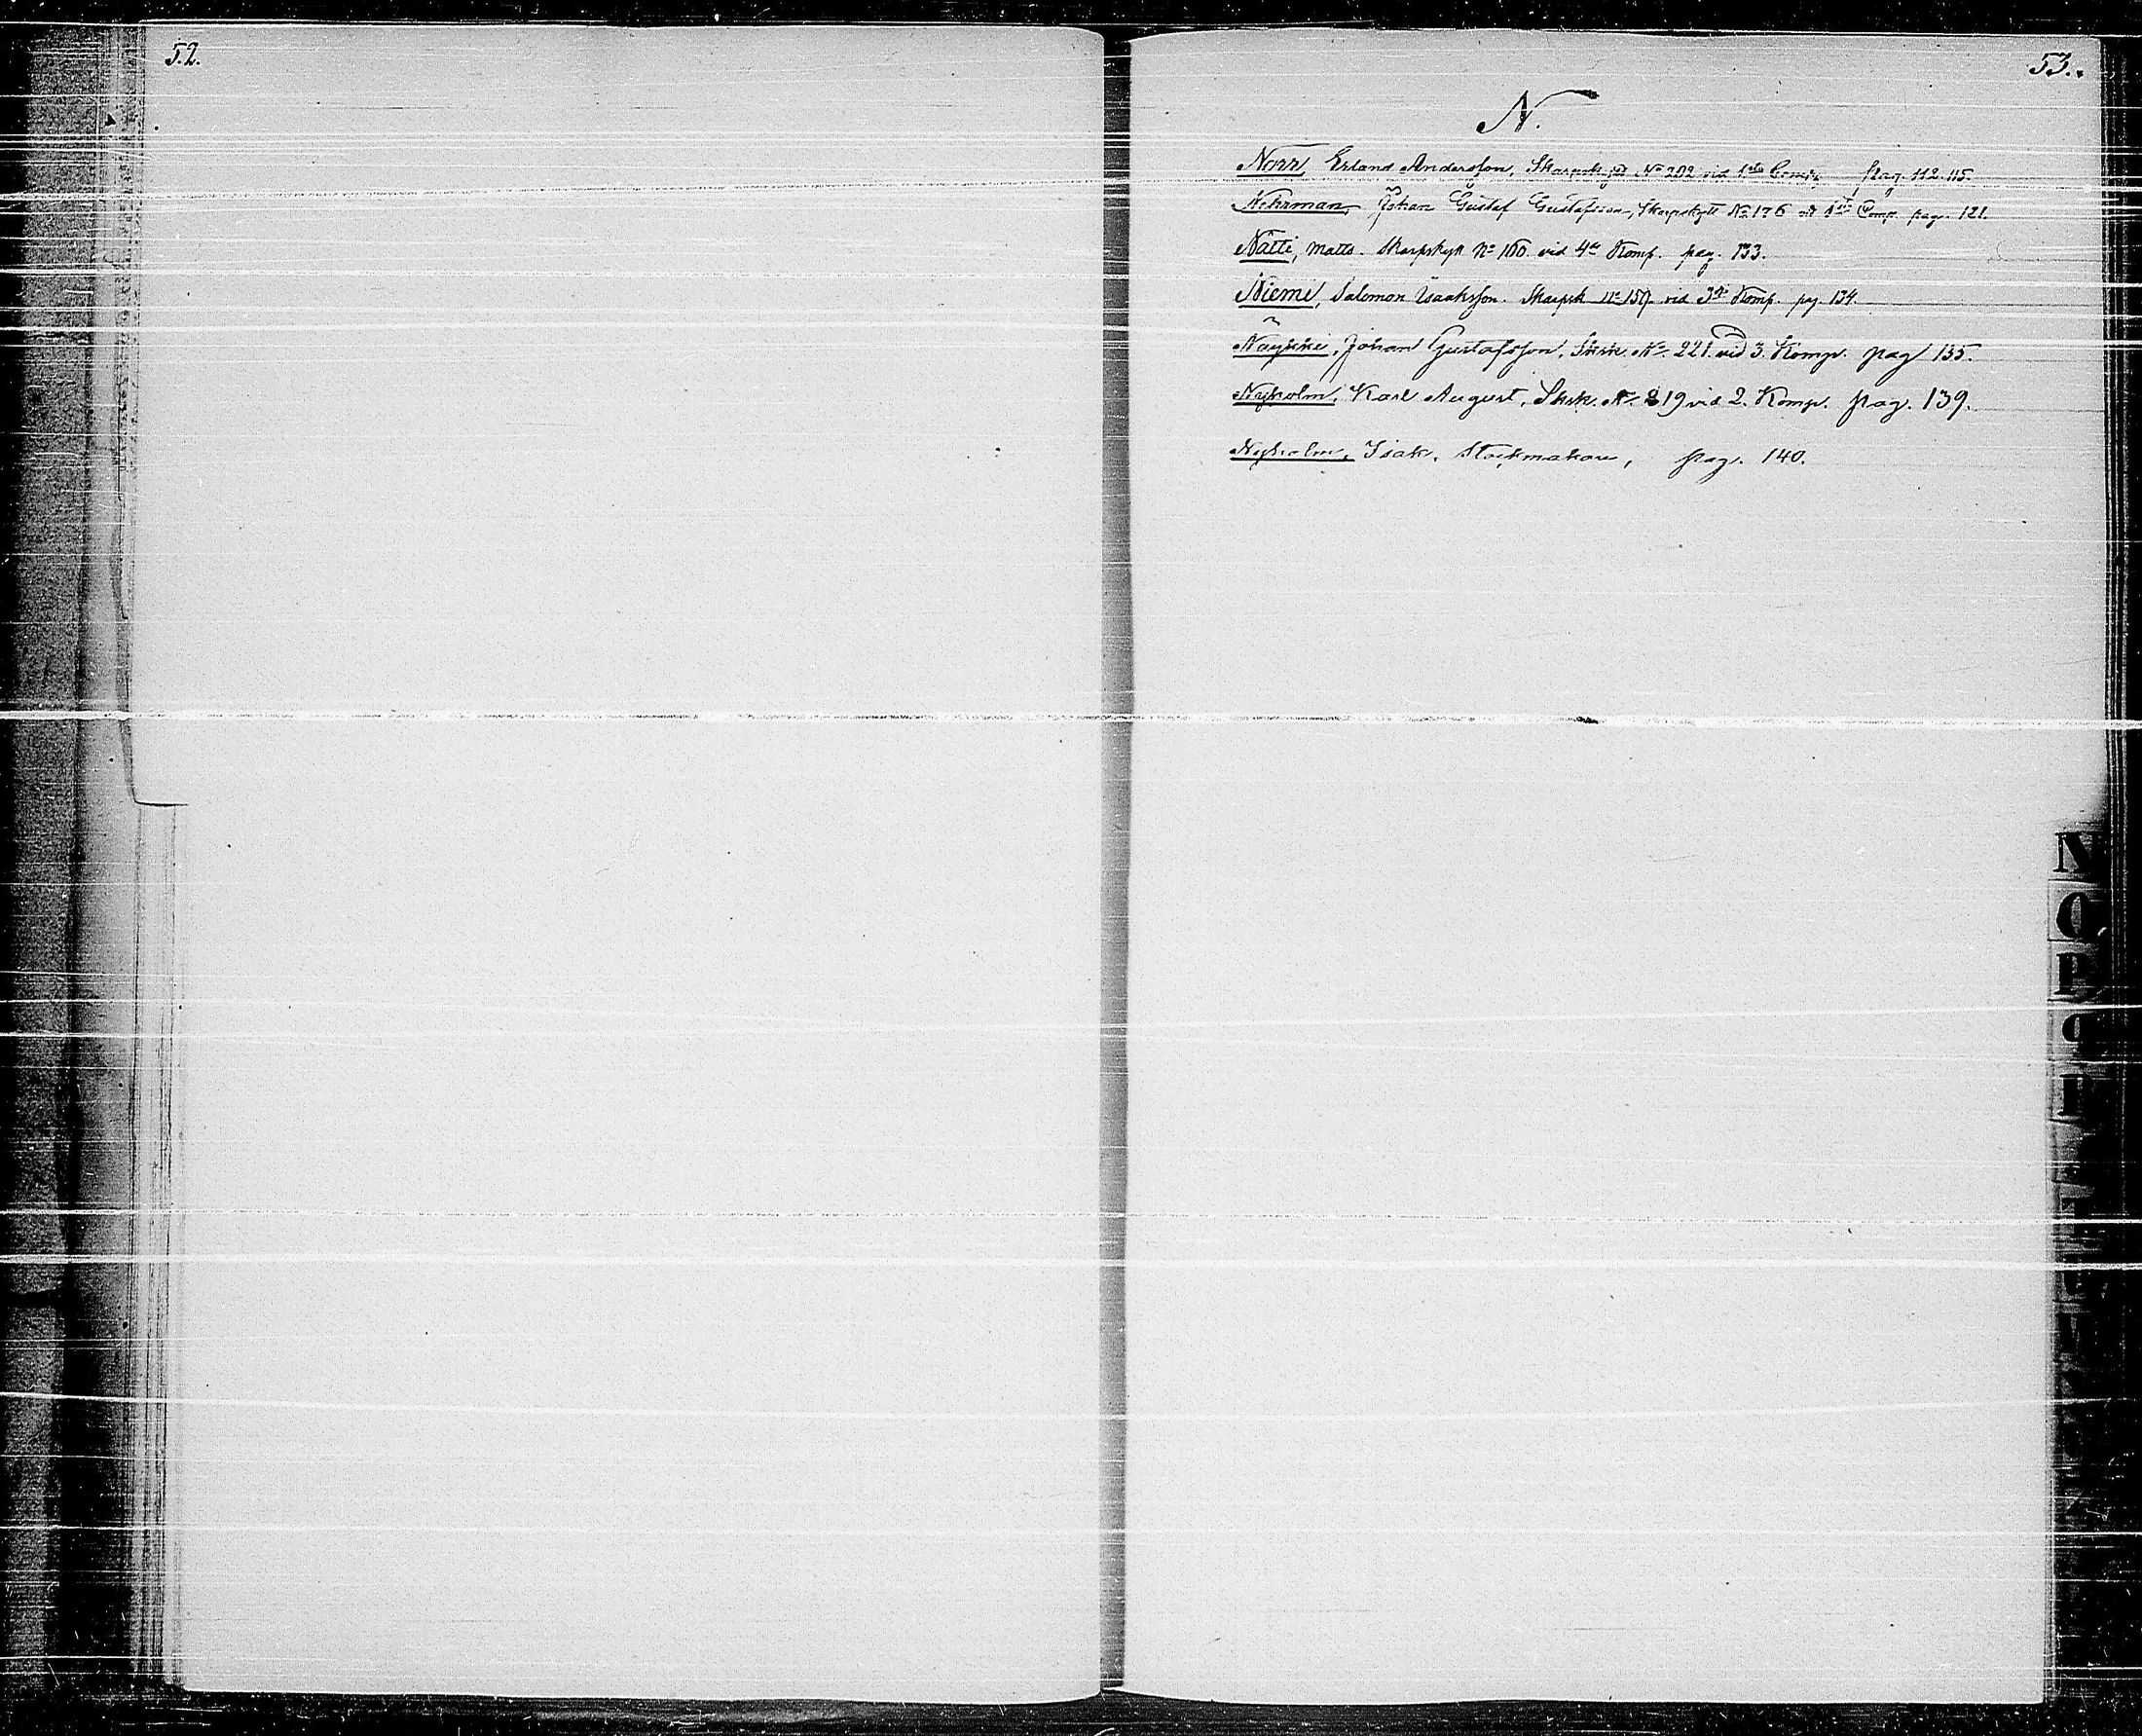 52.
53.
N.
Norr, Erland Andersson, Skarpskytt No 202 vid 1sta Comp. pag. 112. 115.
Nehrman, Johan Gustaf Gustafsson, Skarpskytt No 176 vid Comp. pag. 121.
Nätti, Matts. Skarpskytt No 160. vid 4de Komp. pag. 133.
Niemi, Salomon Isaaksson. Skarpsk No 157 vid 3dje Komp. pag. 134.
Näykki, Johan Gustafsson, Skrsk. No. 221. vid 3. Komp. pag 135.
Nyholm, Karl August, Skrsk. No. 219 vid 2. Komp. pag. 139.
Nyholm, Isak, Stockmakare, pag. 140.
N
O
P
Q
R